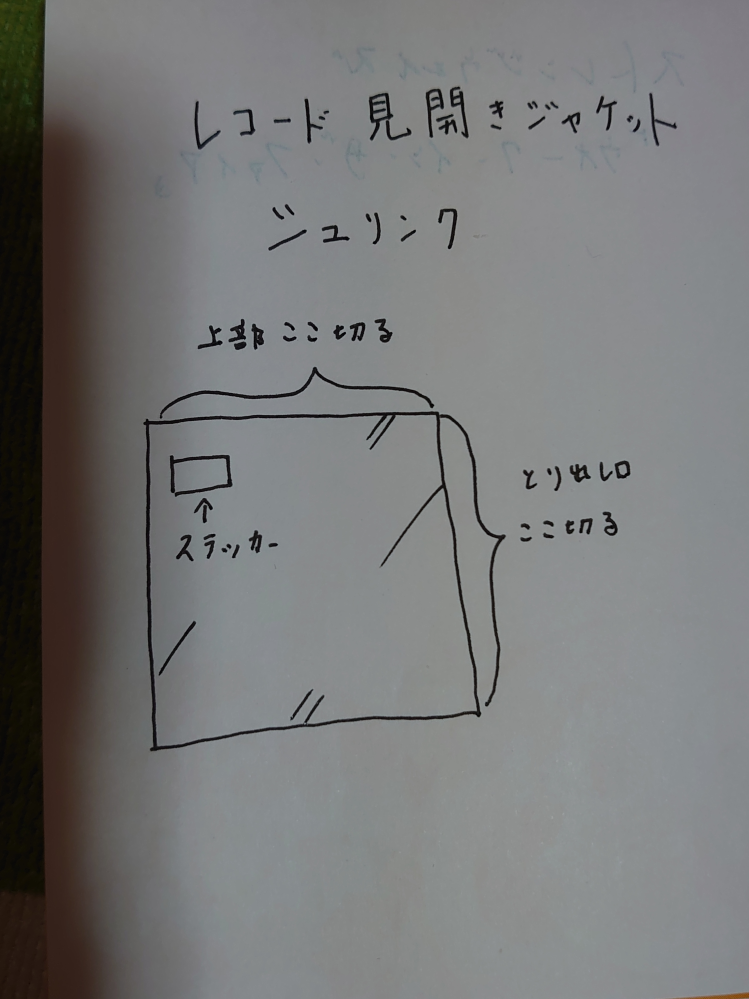 レコード 見開きジャケット
シュリンク
上部 ここ切る
ステッカー
とり出し口
ここ切る